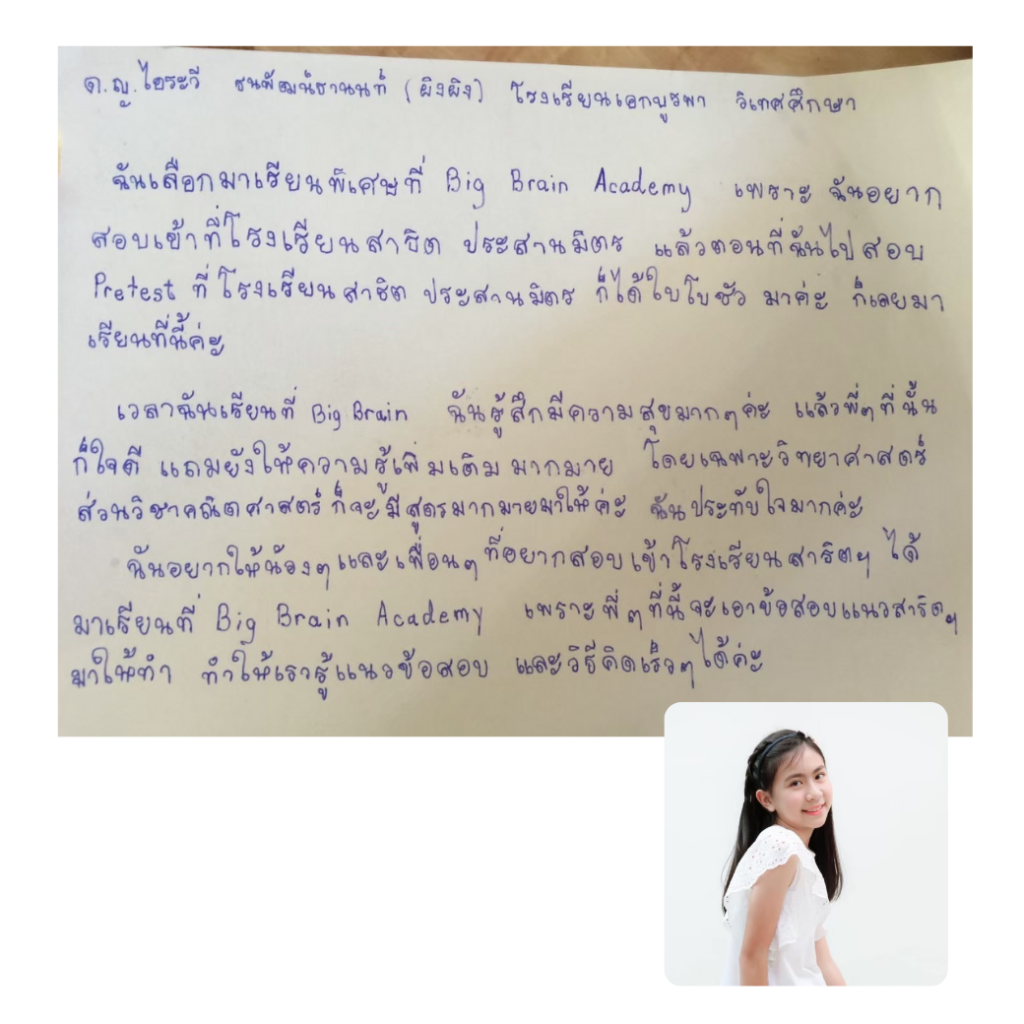 ด.ญ.ไอระวี ธนพัฒน์ธานนท์ (ผิงผิง) โรงเรียนเอกบูรพา วิเทศศึกษา
ฉันเลือกมาเรียนพิเศษที่ Big Brain Academy เพราะ ฉันอยาก
สอบเข้าที่โรงเรียนสาธิต ประสานมิตร แล้วตอนที่ฉันไปสอบ
Pretest ที่โรงเรียนสาธิต ประสานมิตร ก็ได้ใบโบชัว มาค่ะ ก็เลยมา
เรียนที่นี้ค่ะ
เวลาฉันเรียนที่ Big Brain ฉันรู้สึกมีความสุขมากๆค่ะ แล้วพี่ๆที่นั้น
ก็ใจดี แถมยังให้ความรู้เพิ่มเติมมากมาย โดยเฉพาะวิทยาศาสตร์
ส่วนวิชาคณิตศาสตร์ ก็จะมีสูตรมากมายมาให้ค่ะ ฉันประทับใจมากค่ะ
ฉันอยากให้น้องๆและเพื่อนๆที่อยากสอบเข้าโรงเรียนสาธิตฯ ได้
มาเรียนที่ Big Brain Academy เพราะพี่ๆที่นี้จะเอาข้อสอบแนวสาธิตฯ
มาให้ทำ ทำให้เรารู้แนวข้อสอบ และวิธีคิดเร็วๆได้ค่ะ